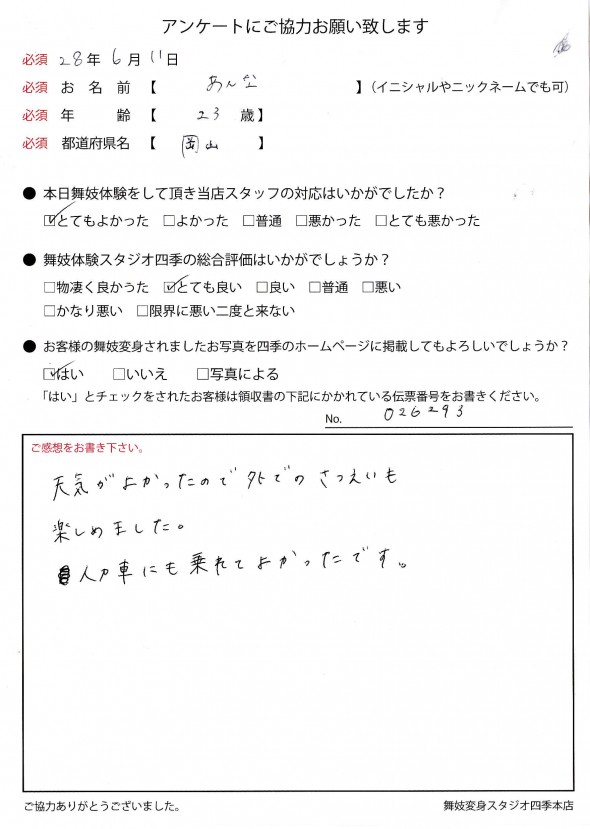 アンケートにご協力お願い致します
必須 28年6月11日
必須 お名前 【 あんな 】（イニシャルやニックネームでも可）
必須 年齢 【 23 歳】
必須 都道府県名 【 岡山 】
● 本日舞妓体験をして頂き当店スタッフの対応はいかがでしたか？
☑とてもよかった □よかった □普通 □悪かった □とても悪かった
● 舞妓体験スタジオ四季の総合評価はいかがでしょうか？
□物凄く良かうた ☑とても良い □良い □普通 □悪い
□かなり悪い □限界に悪い二度と来ない
● お客様の舞妓変身されましたお写真を四季のホームページに掲載してもよろしいでしょうか？
☑はい □いいえ □写真による
「はい」とチェックをされたお客様は領収書の下記にかかれている伝票番号をお書きください。
No. 026293
ご感想をお書き下さい。
天気がよかったので外でのさつえいも
楽しめました。
人力車にも乗れてよかったです。
ご協力ありがとうございました。 舞妓変身スタジオ四季本店